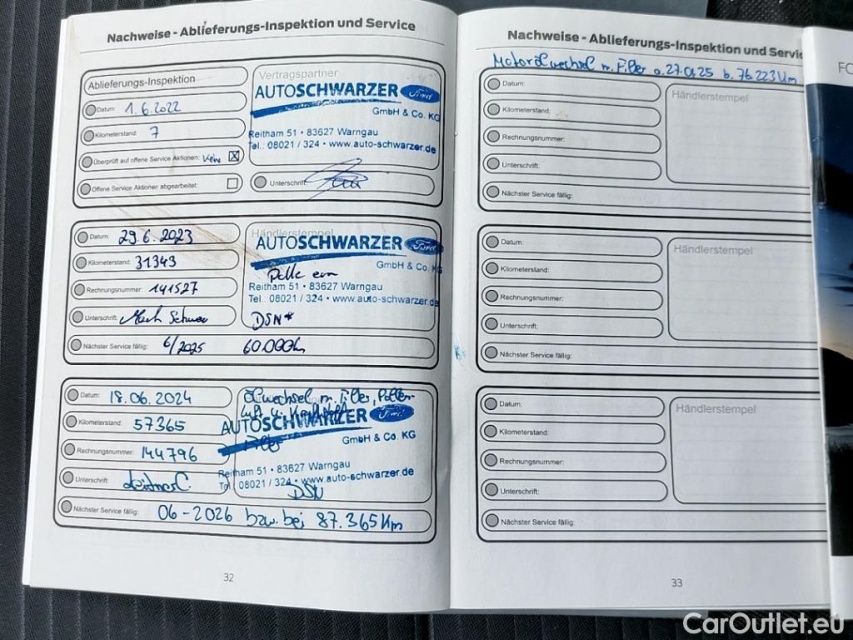 Nachweise - Ablieferungs-Inspektion und Service
Ablieferungs-Inspektion
Datum: 1.6.2022
Kilometerstand: 7
Überprüft auf offene Service Aktionen: Keine
Offene Service Aktionen abgearbeitet:
Vertragspartner
AUTOSCHWARZER Ford
GmbH & Co. KG
Reitham 51 • 83627 Warngau
Tel.: 08021 / 324 • www.auto-schwarzer.de
Unterschrift:
Datum: 29.6.2023
Kilometerstand: 31343
Rechnungsnummer: 141527
Unterschrift:
Nächster Service fällig: 6/2025 60.000km
Händlerstempel
AUTOSCHWARZER Ford
GmbH & Co. KG
Reitham 51 • 83627 Warngau
Tel. 08021 / 324 • www.auto-schwarzer.de
DSN*
Datum: 18.06.2024
Kilometerstand: 57365
Rechnungsnummer: 144796
Unterschrift:
Nächster Service fällig: 06-2026 bzw. bei 87.365Km
Ölwechsel m. Filter, Pollen
AUTOSCHWARZER Ford
GmbH & Co. KG
Reitham 51 • 83627 Warngau
Tel. 08021 / 324 • www.auto-schwarzer.de
DSN
32
Nachweise - Ablieferungs-Inspektion und Servic
Motorölwechsel m. Filter a. 27.01.25 b. 76223Km
Datum:
Kilometerstand:
Rechnungsnummer:
Unterschrift:
Nächster Service fällig:
Händlerstempel
Datum:
Kilometerstand:
Rechnungsnummer:
Unterschrift:
Nächster Service fällig:
Händlerstempel
Datum:
Kilometerstand:
Rechnungsnummer:
Unterschrift:
Nächster Service fällig:
Händlerstempel
33
FO
CarOutlet.eu